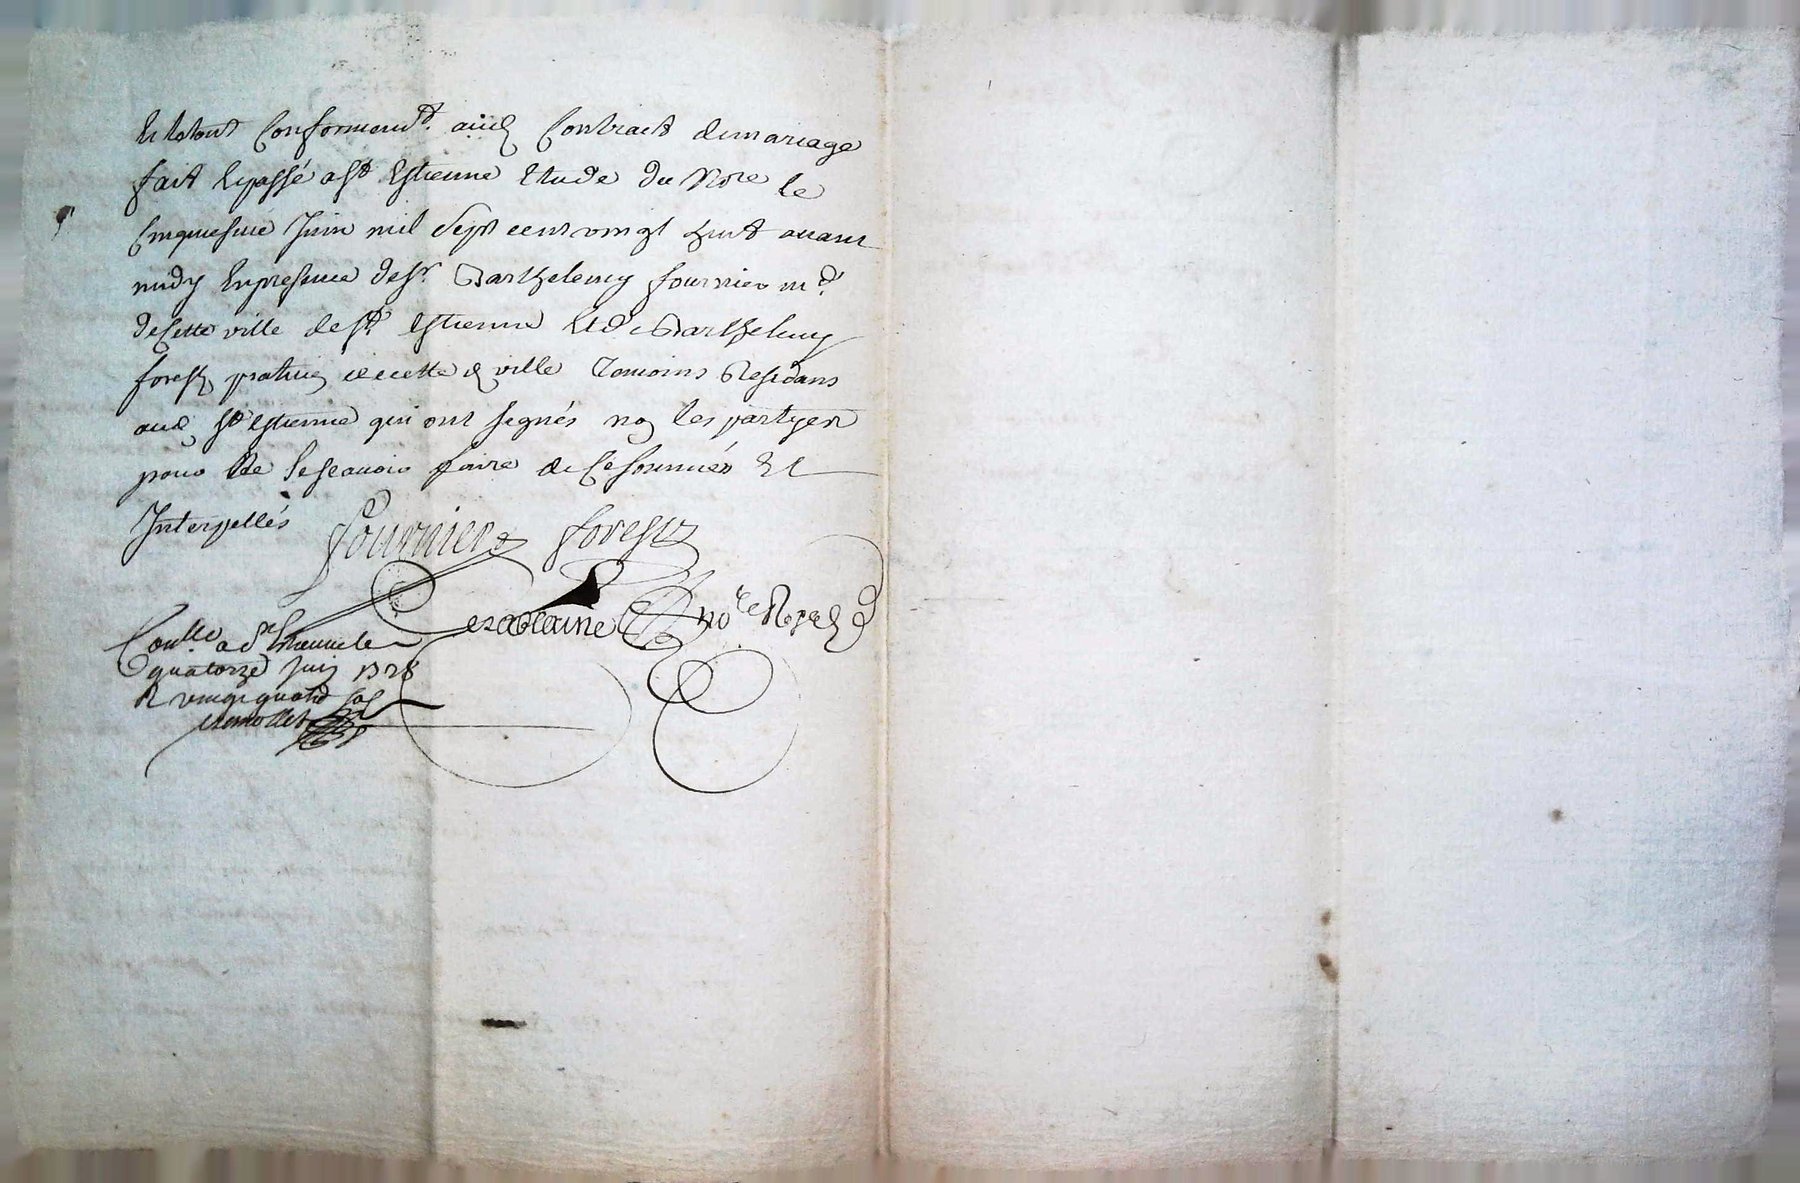 Et le tout Conformemt. aud Contract de mariage
fait Et passé a St Estienne Etude du Nore le
Cinquiesme Juin mil Sept cent vingt huit avant
midy En presence de Sr. Barthelemy fournier md.
de Cette ville de St Estienne Et de Barthelemy
forest praticien de cette ville Temoins Residans
aud St Estienne qui ont signés non les partyes
pour ne le scavoir faire de Ce sommés Et
Interpellés fournier forest
nore Royal
Conlle. a St Estienne le
quatorze juin 1728
R vingt quatre sols